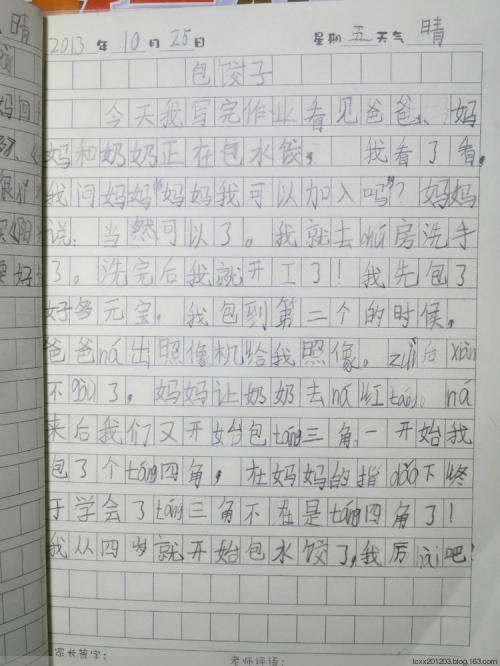 晴
2013 年 10 月 25 日 星期 五 天气 晴
包饺子
今天我写完作业看见爸爸、妈
妈和奶奶正在包水饺，我看了看，
我问妈妈“妈妈我可以加入吗”？妈妈
说：当然可以了。我就去chú房洗手
了。洗完后我就开工了！我先包了
好多元宝。我包到第二个的时候，
爸爸ná出照像机给我照像。zuì后xiàn
不gòu了。妈妈让奶奶去ná红táng。ná
来后我们又开始包táng三角。一开始我
包了个táng四角，在妈妈的指dǎo下终
于学会了táng三角不在是táng四角了！
我从四岁就开始包水饺了，我厉hài吧！
家长签字： 老师评语：
lcxx201203.blog.163.com